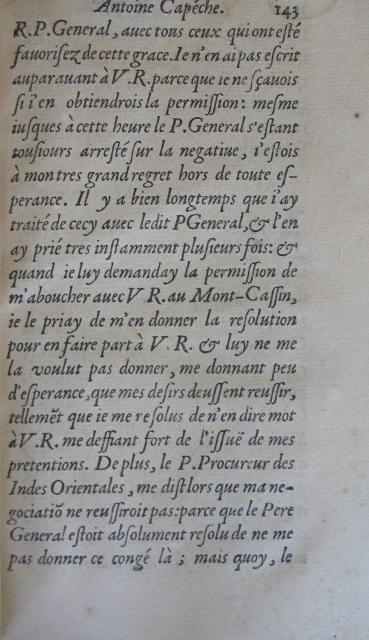 Antoine Capéche. 143
R. P. General, auec tous ceux qui ont esté
fauorisez de cette grace. Ie n'en ai pas escrit
auparauant à V. R. parce que ie ne sçauois
si i'en obtiendrois la permission: mesme
iusques à cette heure le P. General s'estant
tousiours arresté sur la negatiue, i'estois
à mon tres grand regret hors de toute es-
perance. Il y a bien longtemps que i'ay
traité de cecy auec ledit P General, & l'en
ay prié tres instamment plusieurs fois: &
quand ie luy demanday la permission de
m'aboucher auec V R. au Mont-Cassin,
ie le priay de m'en donner la resolution
pour en faire part à V. R. & luy ne me
la voulut pas donner, me donnant peu
d'esperance, que mes desirs deussent reussir,
tellemẽt que ie me resolus de n'en dire mot
à V. R. me deffiant fort de l'issuë de mes
pretentions. De plus, le P. Procureur des
Indes Orientales, me dist lors que ma ne-
gociatiõ ne reussiroit pas: parce que le Pere
General estoit absolument resolu de ne me
pas donner ce congé là ; mais quoy, le